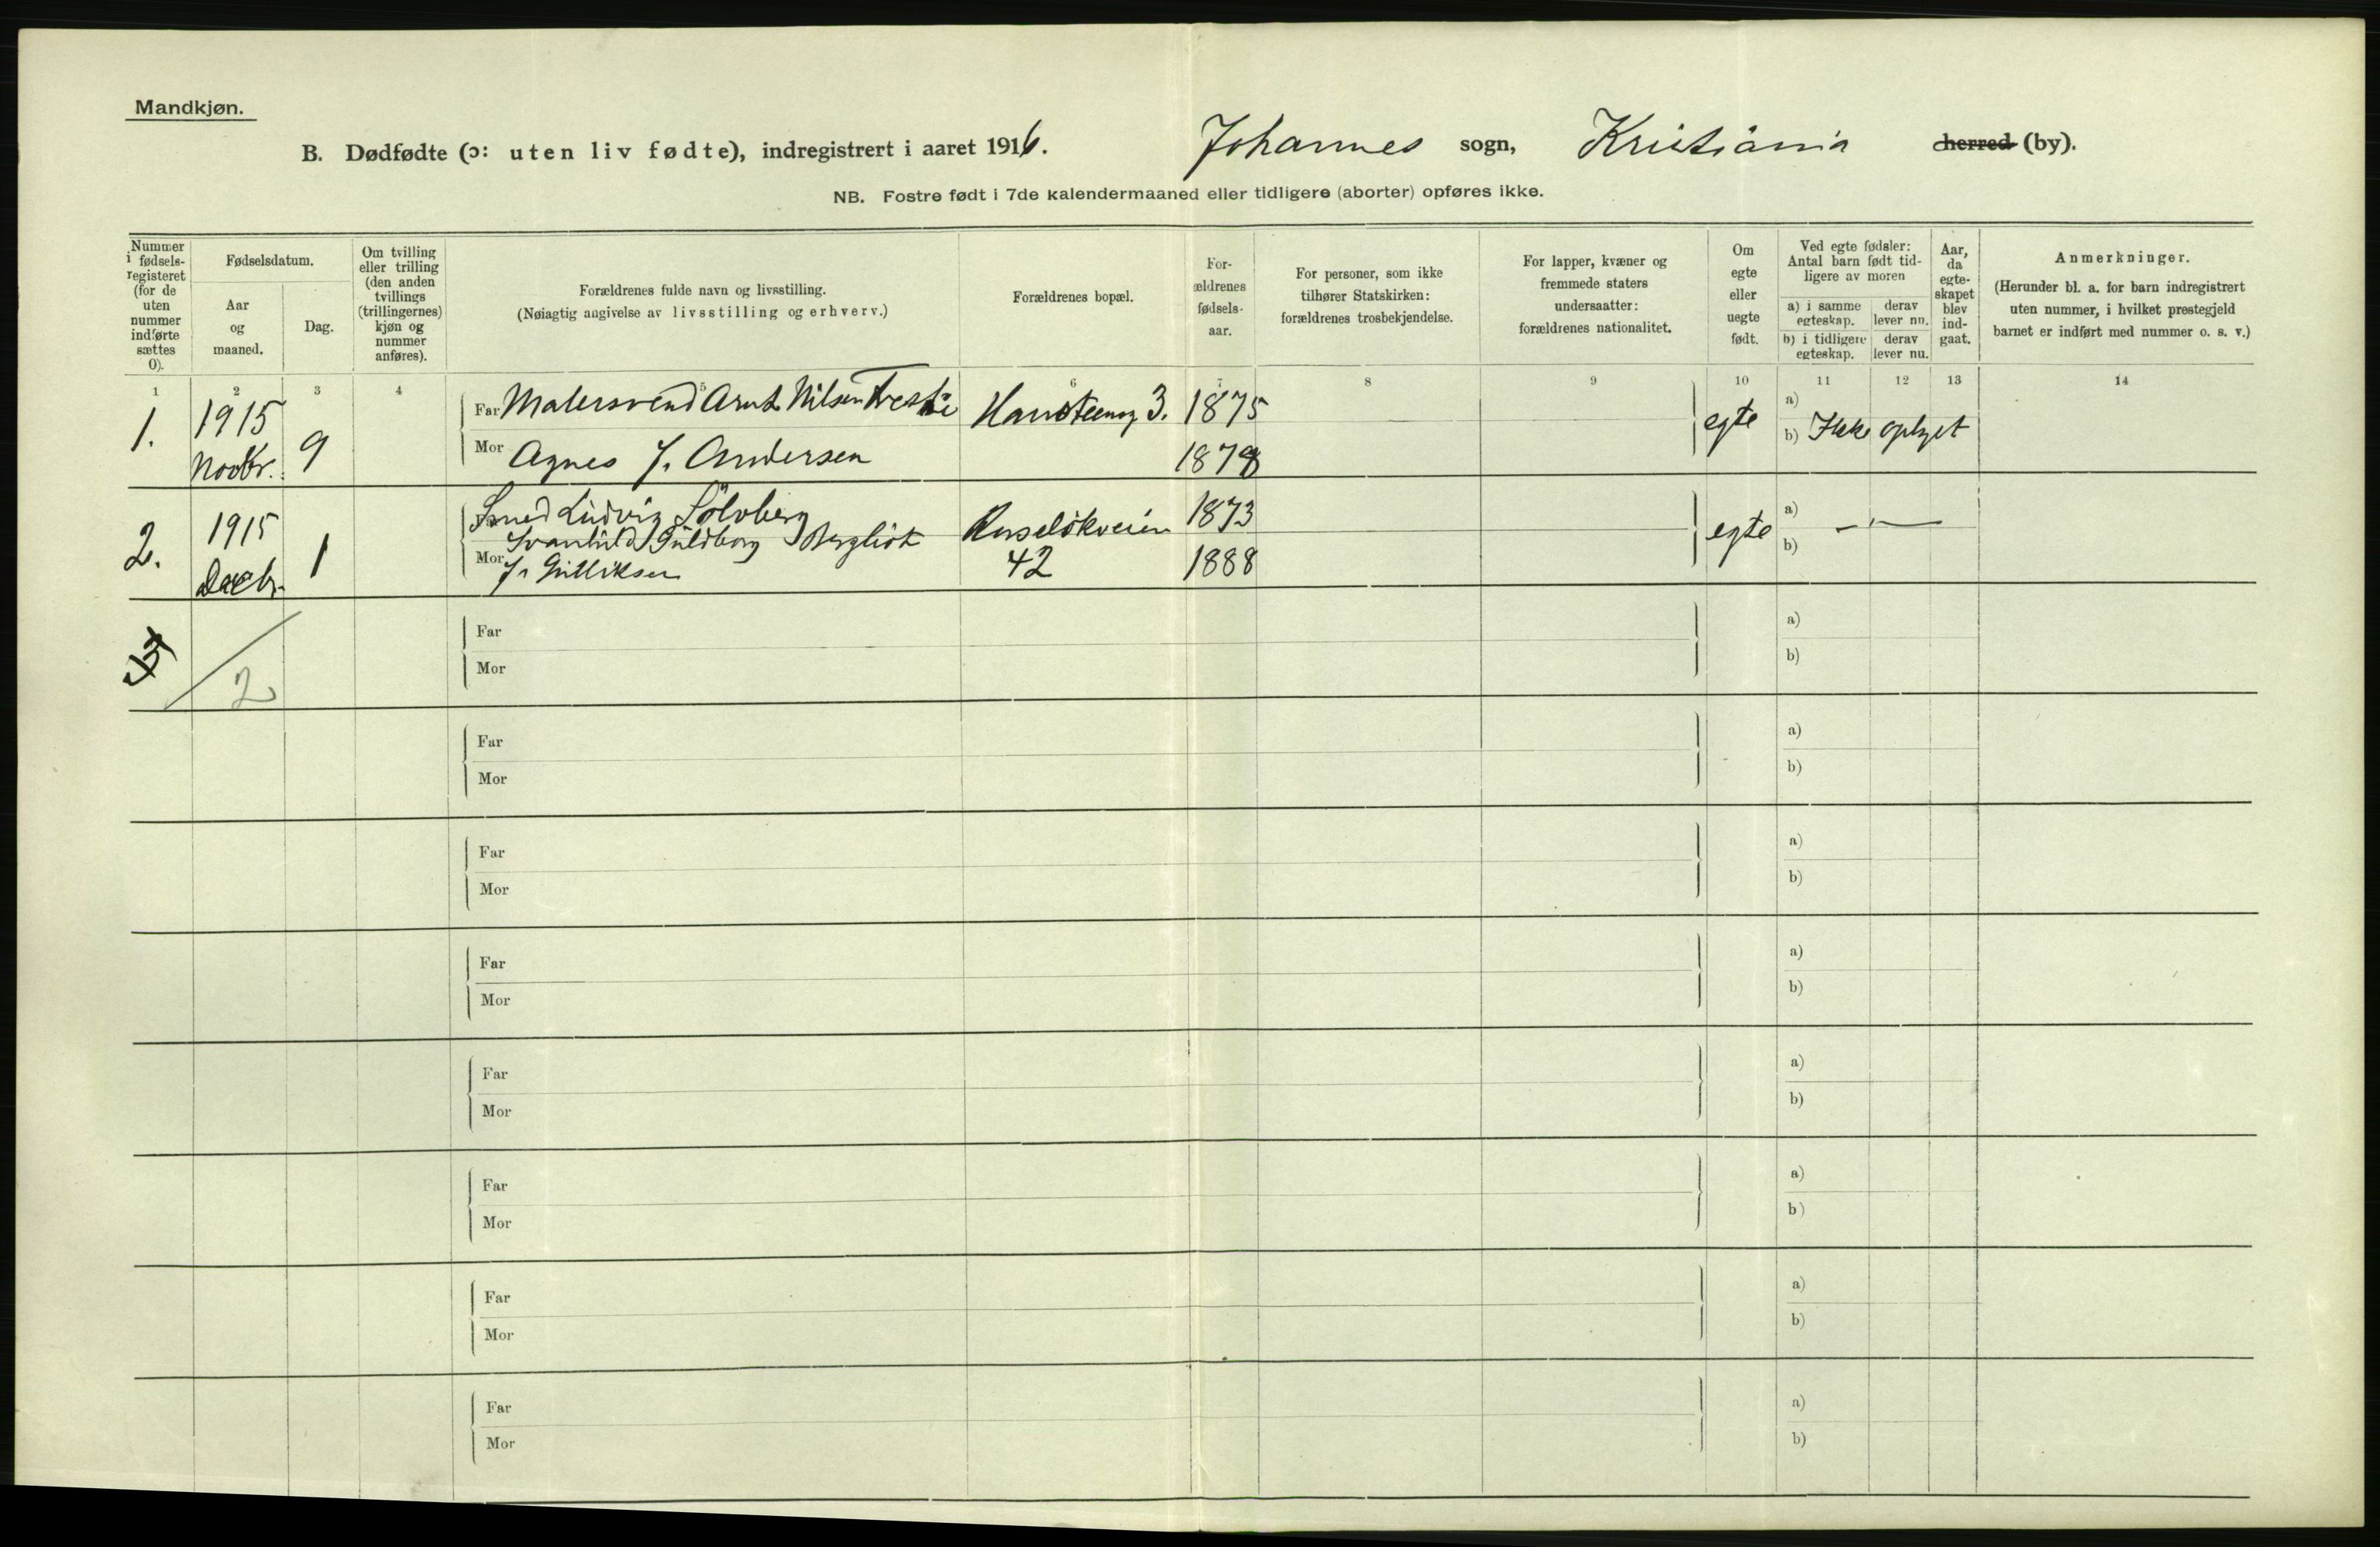 Mandkjøn.
B. Dødfødte (ɔ: uten liv fødte), indregistrert i aaret 1916. Johannes sogn, Kristiania herred (by).
NB. Fostre født i 7de kalendermaaned eller tidligere (aborter) opføres ikke.
Nummer i fødsels-registeret (for de uten nummer indførte sættes 0).
Fødselsdatum.
Aar og maaned.
Dag.
Om tvilling eller trilling (den anden tvillings (trillingernes) kjøn og nummer anføres).
Forældrenes fulde navn og livsstilling.
(Nøiagtig angivelse av livsstilling og erhverv.)
Forældrenes bopæl.
For-ældrenes fødsels-aar.
For personer, som ikke tilhører Statskirken: forældrenes trosbekjendelse.
For lapper, kvæner og fremmede staters undersaatter: forældrenes nationalitet.
Om egte eller uegte født.
Ved egte fødsler: Antal barn født tid-ligere av moren
a) i samme egteskap.
derav lever nu.
b) i tidligere egteskap.
derav lever nu.
Aar, da egte-skapet blev ind-gaat.
Anmerkninger.
(Herunder bl. a. for barn indregistrert uten nummer, i hvilket prestegjeld barnet er indført med nummer o. s. v.)
1 2 3 4 5 6 7 8 9 10 11 12 13 14
1. 1915 Novbr. 9
Far Malersvend Arnt Nilsen Hansteensg 3. 1875
Mor Agnes J. Andersen 1878
egte a) b) Ikke oplyst
2. 1915 Decbr. 1
Smed Ludvig Sölvberg Ruselökveien 1873
Svanhild Guldborg Bergliot
Mor J. Gulliksen 42 1888
egte a) b) — " —
2
Far a)
Mor b)
Far a)
Mor b)
Far a)
Mor b)
Far a)
Mor b)
Far a)
Mor b)
Far a)
Mor b)
Far a)
Mor b)
Far a)
Mor b)